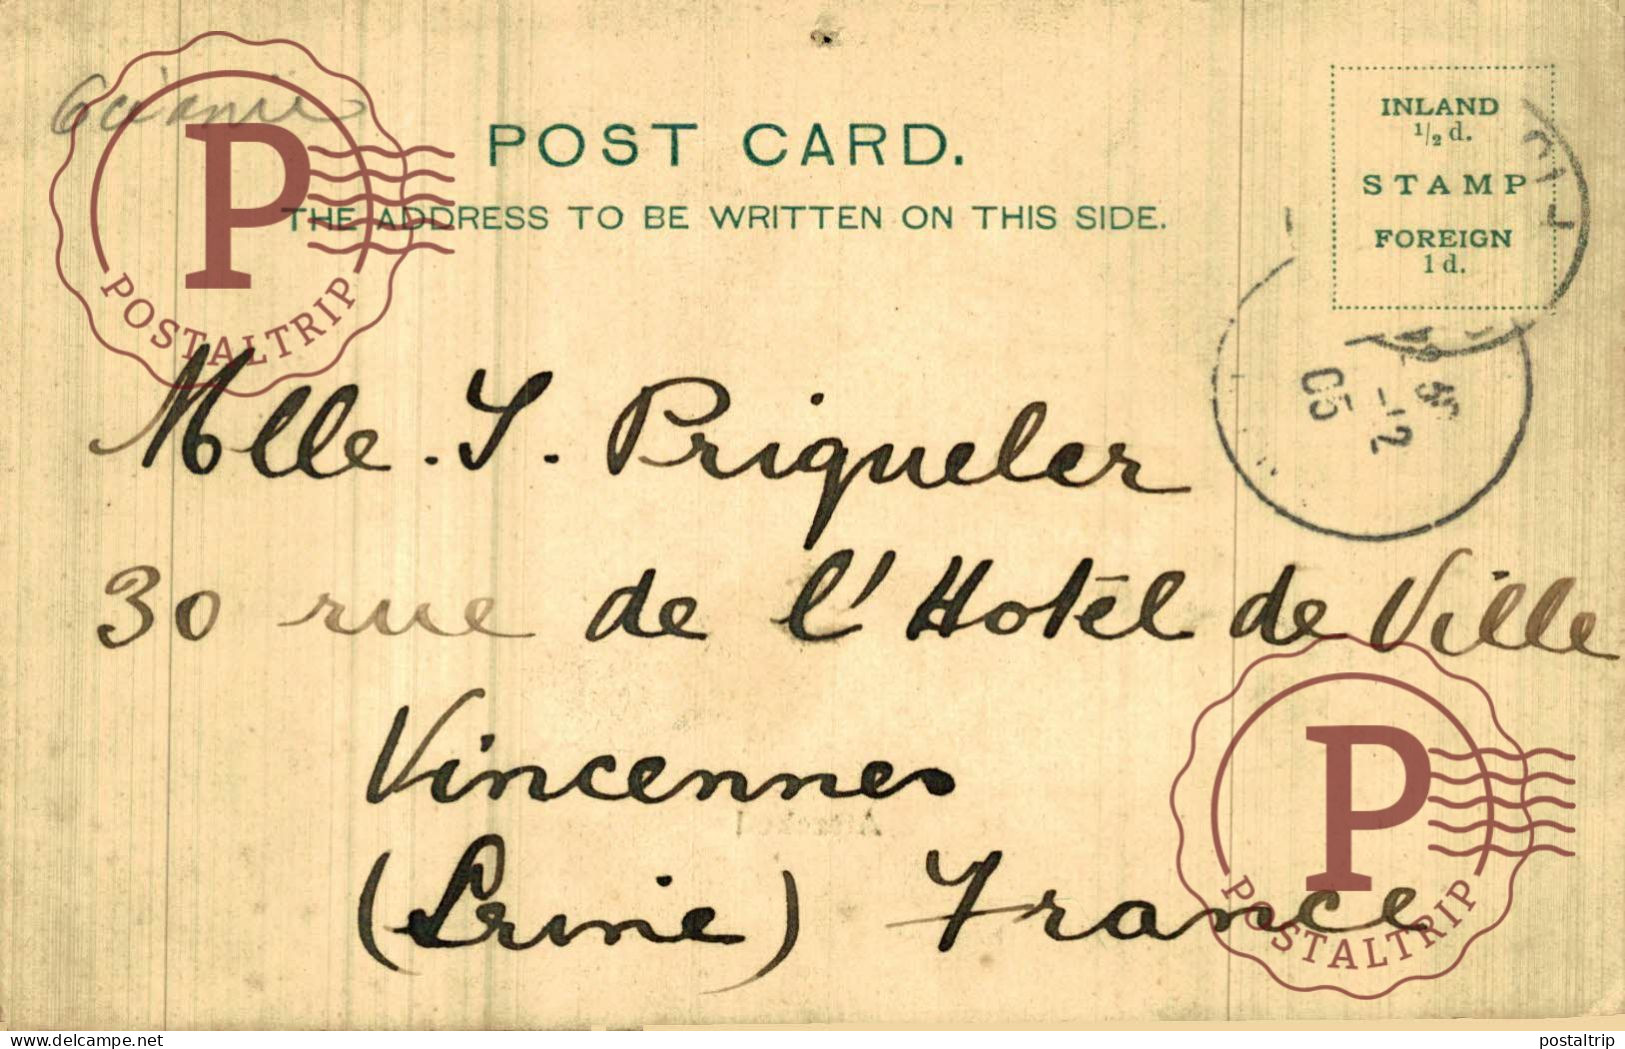 POST CARD.
THE ADDRESS TO BE WRITTEN ON THIS SIDE.
INLAND
1/2 d.
STAMP
FOREIGN
1 d.
05
P
POSTALTRIP
Mlle. Y. Priqueler
30 rue de l'Hotel de Ville
Vincennes
(Seine) France
P
POSTALTRIP
www.delcampe.net
postaltrip